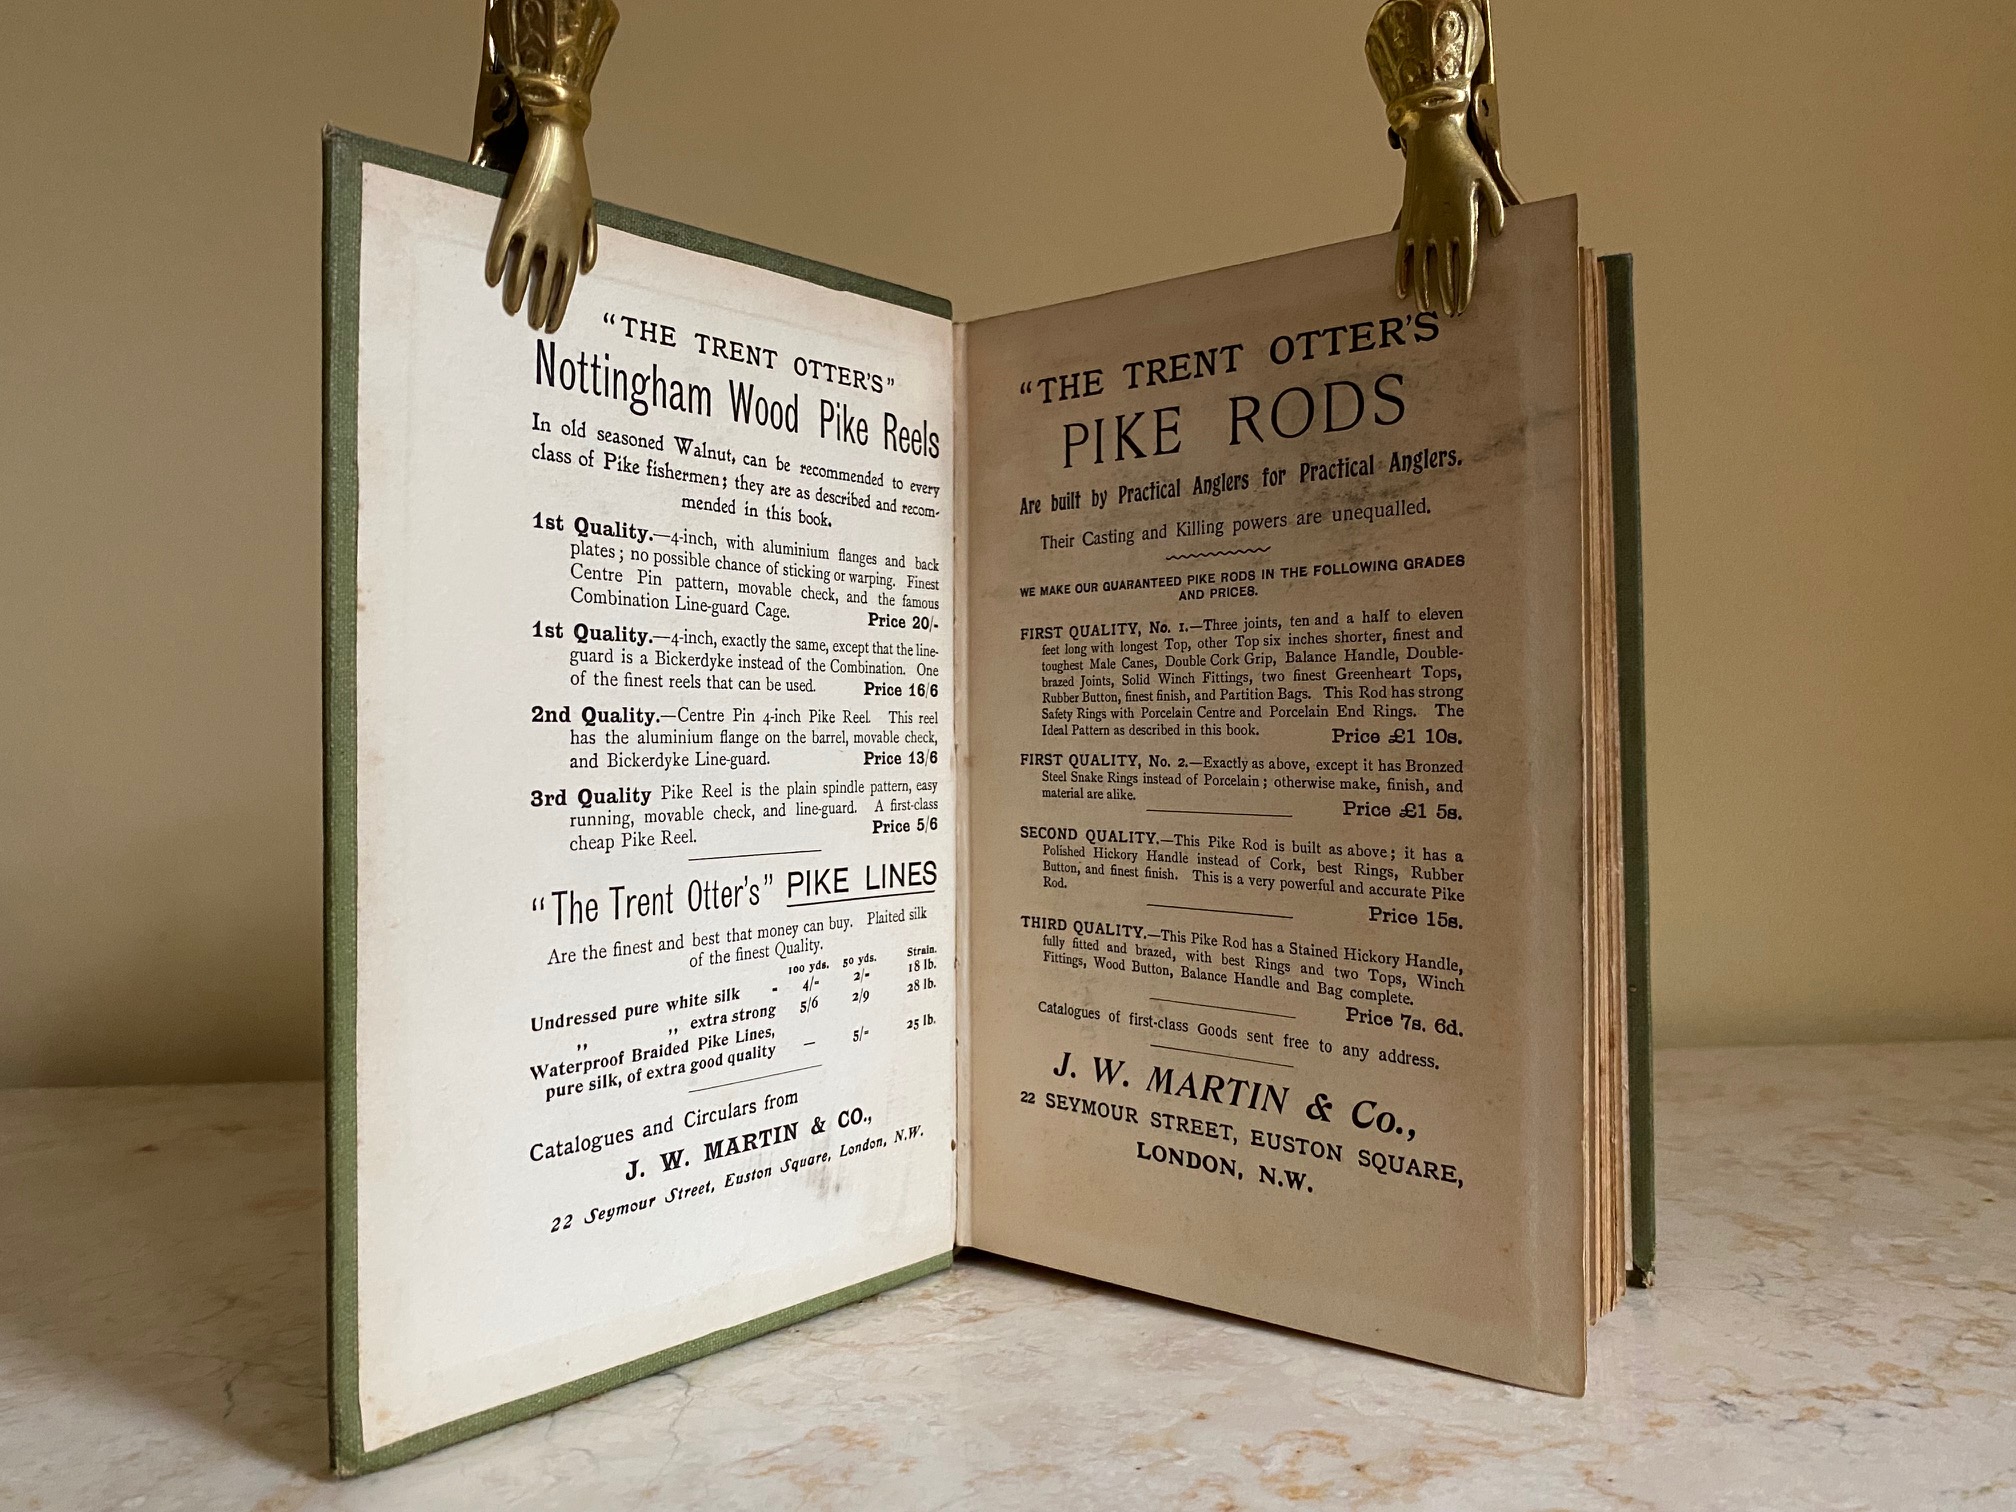 "THE TRENT OTTER'S"
Nottingham Wood Pike Reels
In old seasoned Walnut, can be recommended to every
class of Pike fishermen; they are as described and recom-
mended in this book.
1st Quality.—4-inch, with aluminium flanges and back
plates; no possible chance of sticking or warping. Finest
Centre Pin pattern, movable check, and the famous
Combination Line-guard Cage. Price 20/-
1st Quality.—4-inch, exactly the same, except that the line-
guard is a Bickerdyke instead of the Combination. One
of the finest reels that can be used. Price 16/6
2nd Quality.—Centre Pin 4-inch Pike Reel. This reel
has the aluminium flange on the barrel, movable check,
and Bickerdyke Line-guard. Price 13/6
3rd Quality Pike Reel is the plain spindle pattern, easy
running, movable check, and line-guard. A first-class
cheap Pike Reel. Price 5/6
"The Trent Otter's" PIKE LINES
Are the finest and best that money can buy. Plaited silk
of the finest Quality.
100 yds. 50 yds. Strain.
Undressed pure white silk - 4/- 2/- 18 lb.
,, ,, extra strong 5/6 2/9 28 lb.
Waterproof Braided Pike Lines,
pure silk, of extra good quality — 5/- 25 lb.
Catalogues and Circulars from
J. W. MARTIN & CO.,
22 Seymour Street, Euston Square, London, N.W.
"THE TRENT OTTER'S"
PIKE RODS
Are built by Practical Anglers for Practical Anglers.
Their Casting and Killing powers are unequalled.
WE MAKE OUR GUARANTEED PIKE RODS IN THE FOLLOWING GRADES
AND PRICES.
FIRST QUALITY, No. 1.—Three joints, ten and a half to eleven
feet long with longest Top, other Top six inches shorter, finest and
toughest Male Canes, Double Cork Grip, Balance Handle, Double-
brazed Joints, Solid Winch Fittings, two finest Greenheart Tops,
Rubber Button, finest finish, and Partition Bags. This Rod has strong
Safety Rings with Porcelain Centre and Porcelain End Rings. The
Ideal Pattern as described in this book. Price £1 10s.
FIRST QUALITY, No. 2.—Exactly as above, except it has Bronzed
Steel Snake Rings instead of Porcelain; otherwise make, finish, and
material are alike. Price £1 5s.
SECOND QUALITY.—This Pike Rod is built as above; it has a
Polished Hickory Handle instead of Cork, best Rings, Rubber
Button, and finest finish. This is a very powerful and accurate Pike
Rod. Price 15s.
THIRD QUALITY.—This Pike Rod has a Stained Hickory Handle,
fully fitted and brazed, with best Rings and two Tops, Winch
Fittings, Wood Button, Balance Handle and Bag complete.
Price 7s. 6d.
Catalogues of first-class Goods sent free to any address.
J. W. MARTIN & Co.,
22 SEYMOUR STREET, EUSTON SQUARE,
LONDON, N.W.